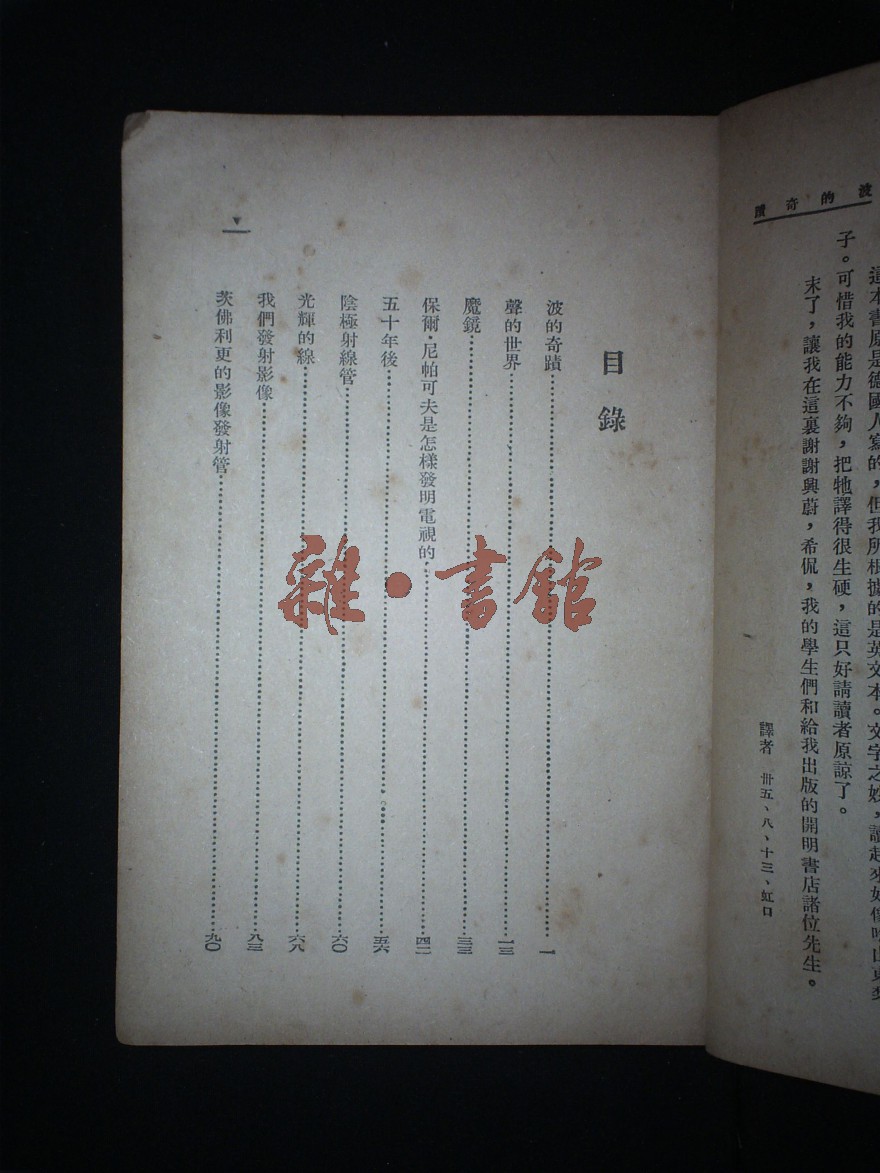 波的奇蹟
這本書原是德國人寫的,但我所根據的是英文本。文字之妙,讀起來好像吃山東
子。可惜我的能力不夠,把牠譯得很生硬,這只好請讀者原諒了。
末了,讓我在這裏謝謝興蔚,希侃,我的學生們和給我出版的開明書店諸位先生。
譯者 卅五、八、十三、虹口
目錄
波的奇蹟 一
聲的世界 一三
魔鏡 三三
保爾·尼帕可夫是怎樣發明電視的 四二
五十年後 五六
陰極射線管 六〇
光輝的線 六八
我們發射影像 八三
茨佛利更的影像發射管 九〇
一
雜·書館